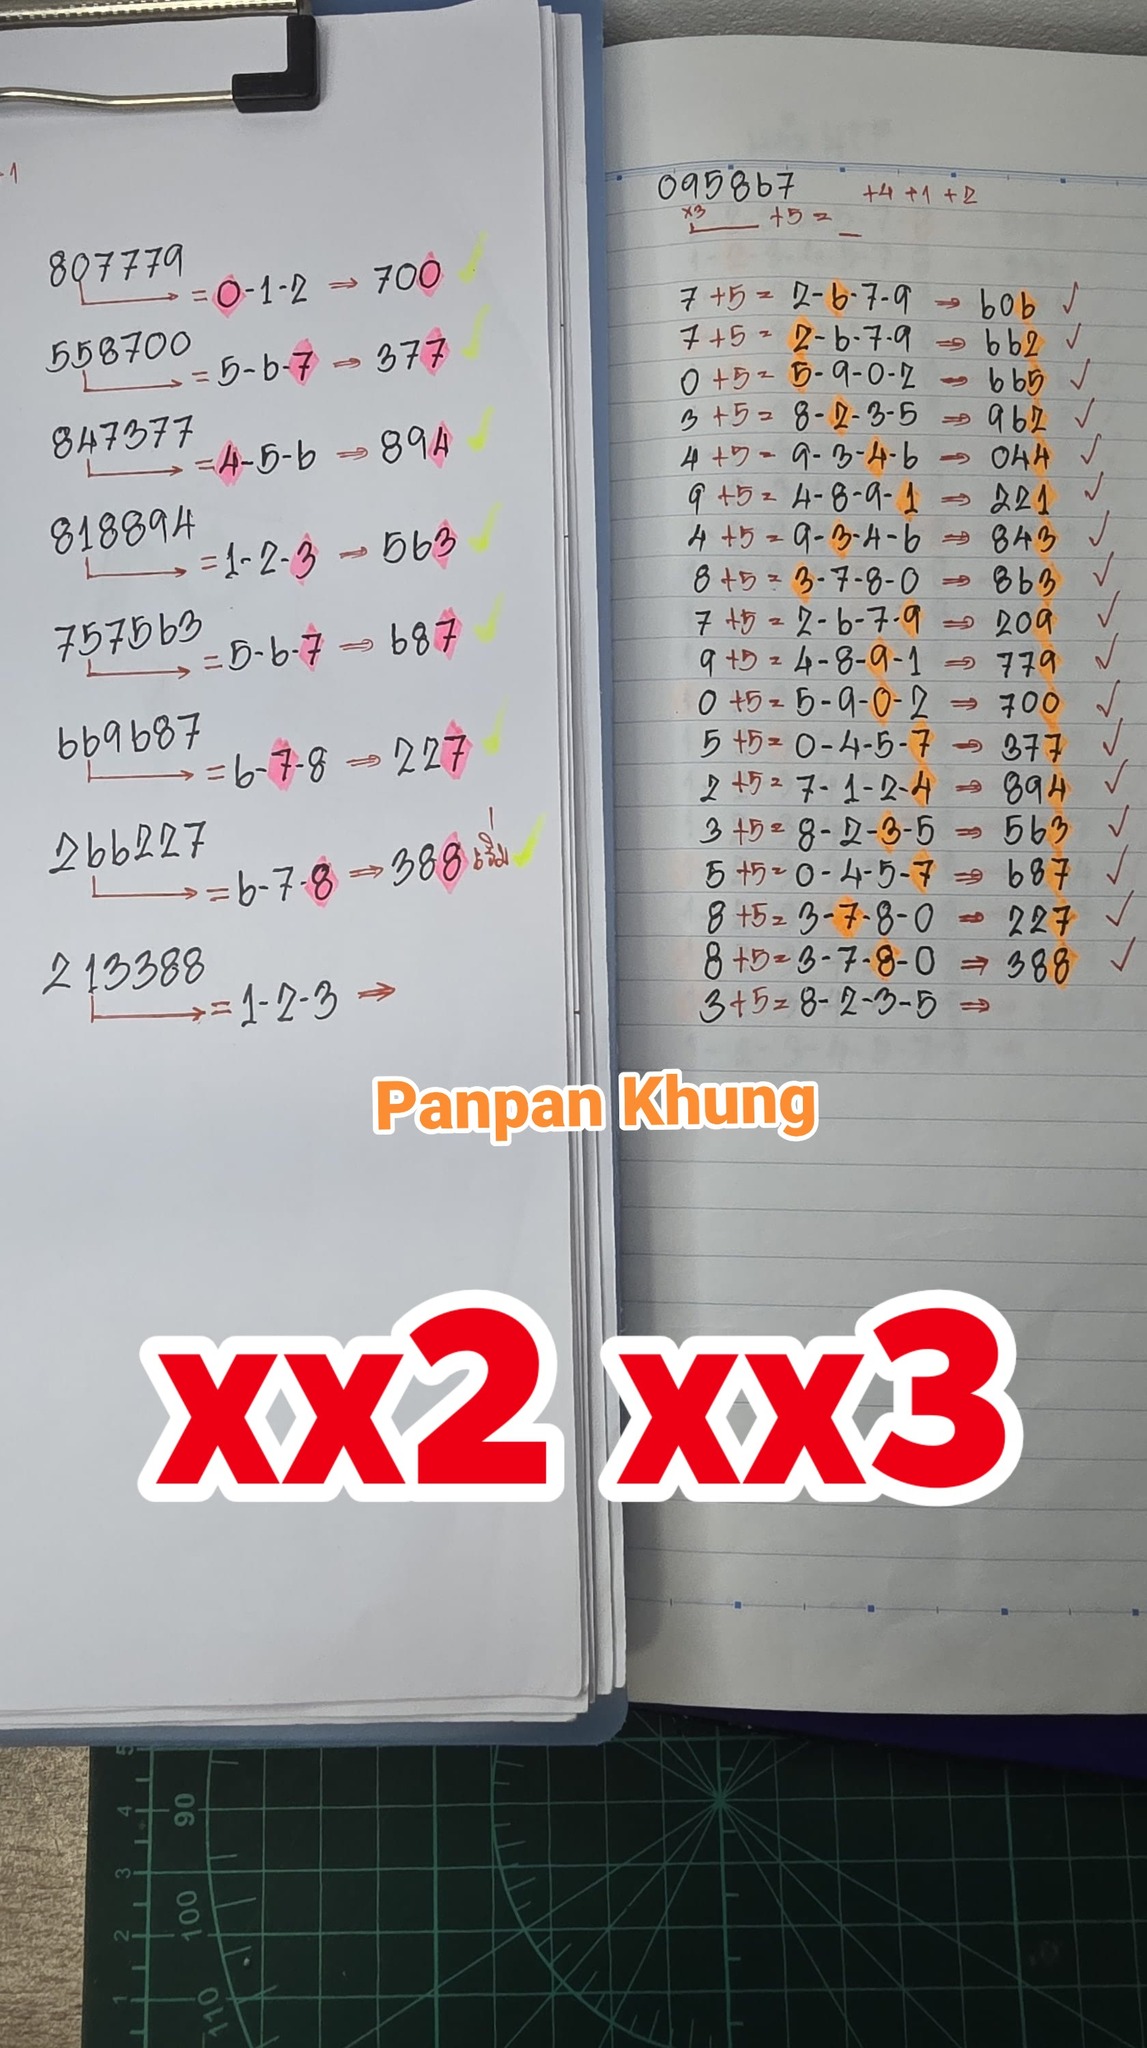 -1
807779
= 0-1-2 → 700
558700
= 5-6-7 → 377
847377
= 4-5-6 → 894
818894
= 1-2-3 → 563
757563
= 5-6-7 → 687
669687
= 6-7-8 → 227
266227
= 6-7-8 → 388
213388
= 1-2-3 →
095867 +4 +1 +2
x3 +5 = _
7 +5 = 2-6-7-9 → 606 ✓
7 +5 = 2-6-7-9 → 662 ✓
0 +5 = 5-9-0-2 → 665 ✓
3 +5 = 8-2-3-5 → 962 ✓
4 +5 = 9-3-4-6 → 044 ✓
9 +5 = 4-8-9-1 → 221 ✓
4 +5 = 9-3-4-6 → 843 ✓
8 +5 = 3-7-8-0 → 863 ✓
7 +5 = 2-6-7-9 → 209 ✓
9 +5 = 4-8-9-1 → 779 ✓
0 +5 = 5-9-0-2 → 700 ✓
5 +5 = 0-4-5-7 → 377 ✓
2 +5 = 7-1-2-4 → 894 ✓
3 +5 = 8-2-3-5 → 563 ✓
5 +5 = 0-4-5-7 → 687 ✓
8 +5 = 3-7-8-0 → 227 ✓
8 +5 = 3-7-8-0 → 388 ✓
3 +5 = 8-2-3-5 →
Panpan Khung
xx2 xx3
5
4
3
2
1
90
100
110